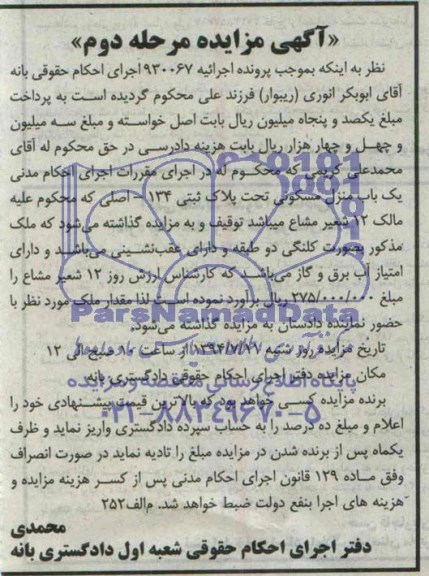 «آگهی مزایده مرحله دوم»
نظر به اینکه بموجب پرونده اجرائیه ۹۳۰۰۶۷ اجرای احکام حقوقی بانه
آقای ابوبکر انوری (ریبوار) فرزند علی محکوم گردیده است به پرداخت
مبلغ یکصد و پنجاه میلیون ریال بابت اصل خواسته و مبلغ سه میلیون
و چهل و چهار هزار ریال بابت هزینه دادرسی در حق محکوم له آقای
محمدعلی کریمی که محکوم له در اجرای مقررات اجرای احکام مدنی
یک باب منزل مسکونی تحت پلاک ثبتی ۱۳۴ - اصلی که محکوم علیه
مالک ۱۲ شعیر مشاع میباشد توقیف و به مزایده گذاشته می‌شود که ملک
مذکور بصورت کلنگی دو طبقه و دارای عقب‌نشینی می‌باشد و دارای
امتیاز آب برق و گاز می‌باشد که کارشناس ارزش روز ۱۲ شعیر مشاع را
مبلغ ۲۷۵/۰۰۰/۰۰۰ ریال برآورد نموده است لذا مقدار ملک مورد نظر با
حضور نماینده دادستان به مزایده گذاشته می‌شود.
ParsNamadData
تاریخ مزایده روز شنبه ۱۳۹۴/۷/۱۱ از ساعت ۱۰ صبح الی ۱۲
مکان مزایده دفتر اجرای احکام حقوقی دادگستری بانه
پایگاه اطلاع رسانی مناقصه و مزایده
برنده مزایده کسی خواهد بود که بالاترین قیمت پیشنهادی خود را
۰۲۱-۸۸۳۴۹۶۷۰-۵
اعلام و مبلغ ده درصد را به حساب سپرده دادگستری واریز نماید و ظرف
یکماه پس از برنده شدن در مزایده مبلغ را تادیه نماید در صورت انصراف
وفق ماده ۱۲۹ قانون اجرای احکام مدنی پس از کسر هزینه مزایده و
هزینه های اجرا بنفع دولت ضبط خواهد شد. م‌الف۲۵۲
محمدی
دفتر اجرای احکام حقوقی شعبه اول دادگستری بانه